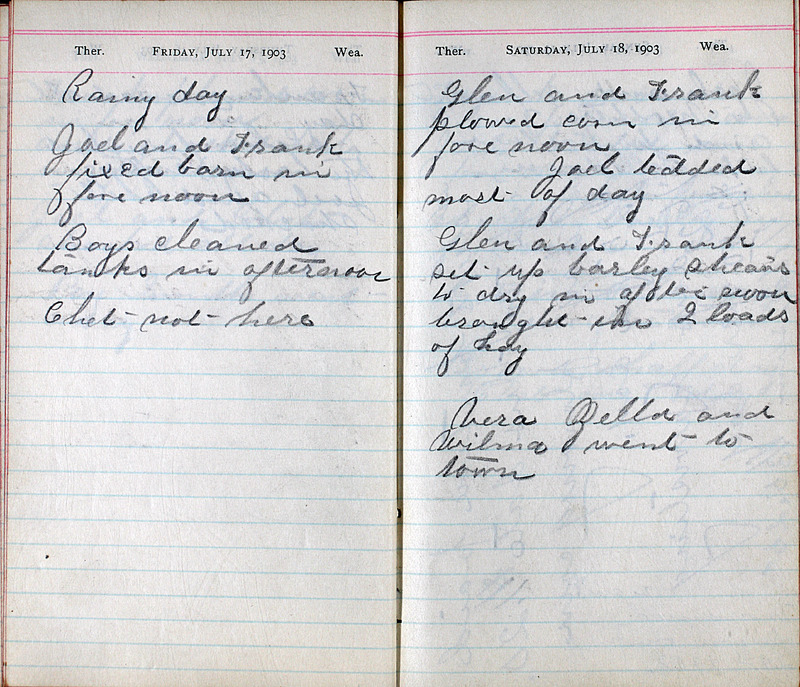 Ther. FRIDAY, JULY 17, 1903 Wea.
Rainy day
Joel and Frank
fixed barn in
fore noon
Boys cleaned
tanks in afternoon
Chet not here
Ther. SATURDAY, JULY 18, 1903 Wea.
Glen and Frank
plowed corn in
fore noon
Joel tedded
most of day
Glen and Frank
set up barley sheavs
to dry in after noon
brought in 2 loads
of hay
Vera Zella and
Wilma went to
town